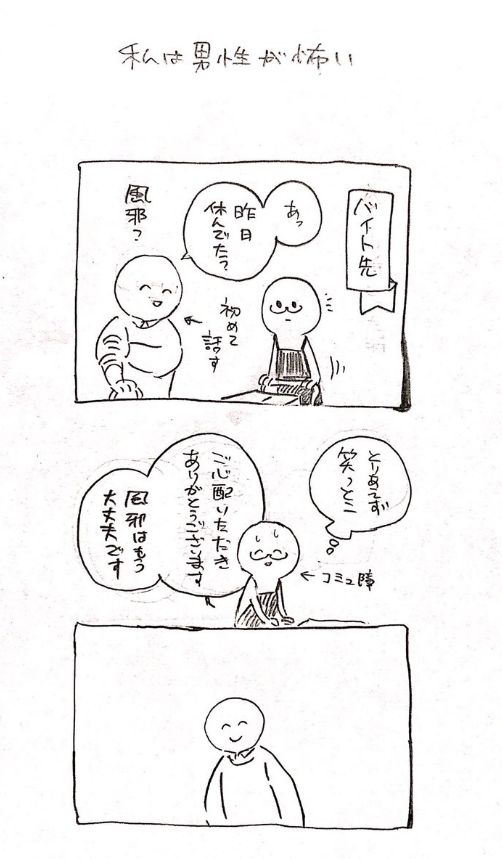 私は男性が怖い
バイト先
あっ
昨日
休んでた?
風邪?
初めて
話す
とりあえず
笑っとこ
コミュ障
ご心配いただき
ありがとうございます
風邪はもう
大丈夫です